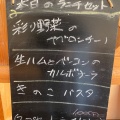 本日のランチセット
彩り野菜の
ペペロンチーノ
生ハムとベーコンの
カルボナーラ
きのこパスタ